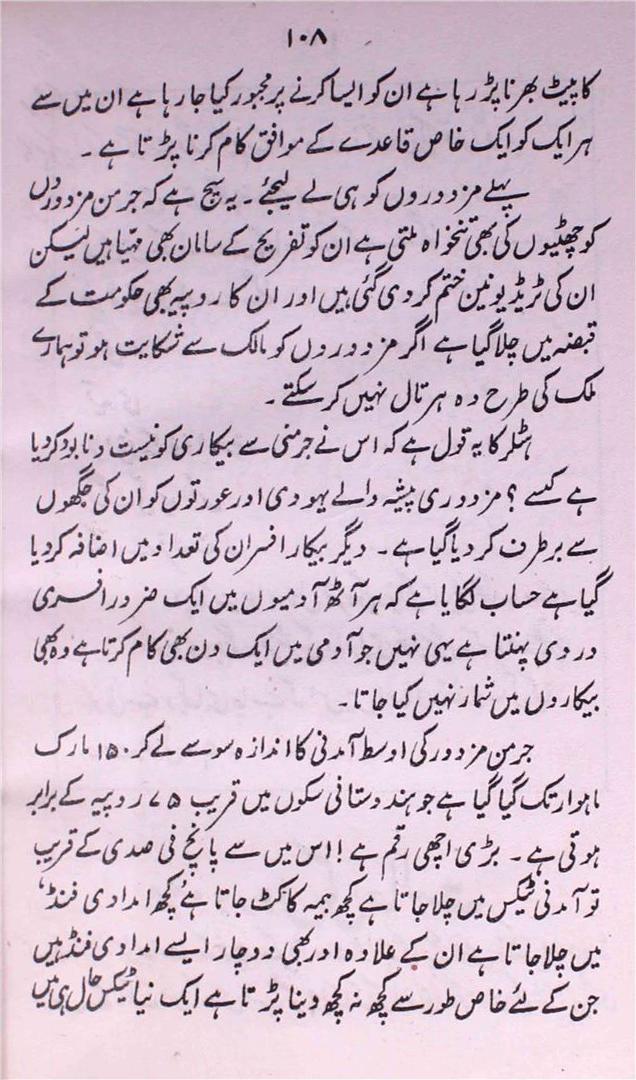 ۱۰۸
کا پیٹ بھرنا پڑ رہا ہے ان کو ایسا کرنے پر مجبور کیا جا رہا ہے ان میں سے
ہر ایک کو ایک خاص قاعدے کے موافق کام کرنا پڑتا ہے ۔
پہلے مزدوروں کو ہی لے لیجئے ۔ یہ سچ ہے کہ جرمن مزدوروں
کو چھٹیوں کی بھی تنخواہ ملتی ہے ان کو تفریح کے سامان بھی مہیا ہیں لیکن
ان کی ٹریڈ یونین ختم کر دی گئی ہیں اور ان کا روپیہ بھی حکومت کے
قبضہ میں چلا گیا ہے اگر مزدوروں کو مالک سے شکایت ہو تو ہمارے
ملک کی طرح وہ ہڑتال نہیں کر سکتے ۔
ہٹلر کا یہ قول ہے کہ اس نے جرمنی سے بیکاری کو نیست و نابود کر دیا
ہے کیسے ؟ مزدوری پیشہ والے یہودی اور عورتوں کو ان کی جگہوں
سے برطرف کر دیا گیا ہے ۔ دیگر بیکار افسران کی تعداد میں اضافہ کر دیا
گیا ہے حساب لگایا ہے کہ ہر آٹھ آدمیوں میں ایک ضرور افسری
وردی پہنتا ہے یہی نہیں جو آدمی میں ایک دن بھی کام کرتا ہے وہ بھی
بیکاروں میں شمار نہیں کیا جاتا ۔
جرمن مزدور کی اوسط آمدنی کا اندازہ سو سے لے کر ۱۵۰ مارک
ماہوار تک گیا گیا ہے جو ہندوستانی سکوں میں قریب ۷۵ روپیہ کے برابر
ہوتی ہے ۔ بڑی اچھی رقم ہے ! اس میں سے پانچ فی صدی کے قریب
تو آمدنی ٹیکس میں چلا جاتا ہے کچھ بیمہ کا کٹ جاتا ہے، کچھ امدادی فنڈ،
میں چلا جاتا ہے ان کے علاوہ اور بھی دو چار ایسے امدادی فنڈ ہیں
جن کے لئے خاص طور سے کچھ نہ کچھ دینا پڑتا ہے ایک نیا ٹیکس حال ہی میں